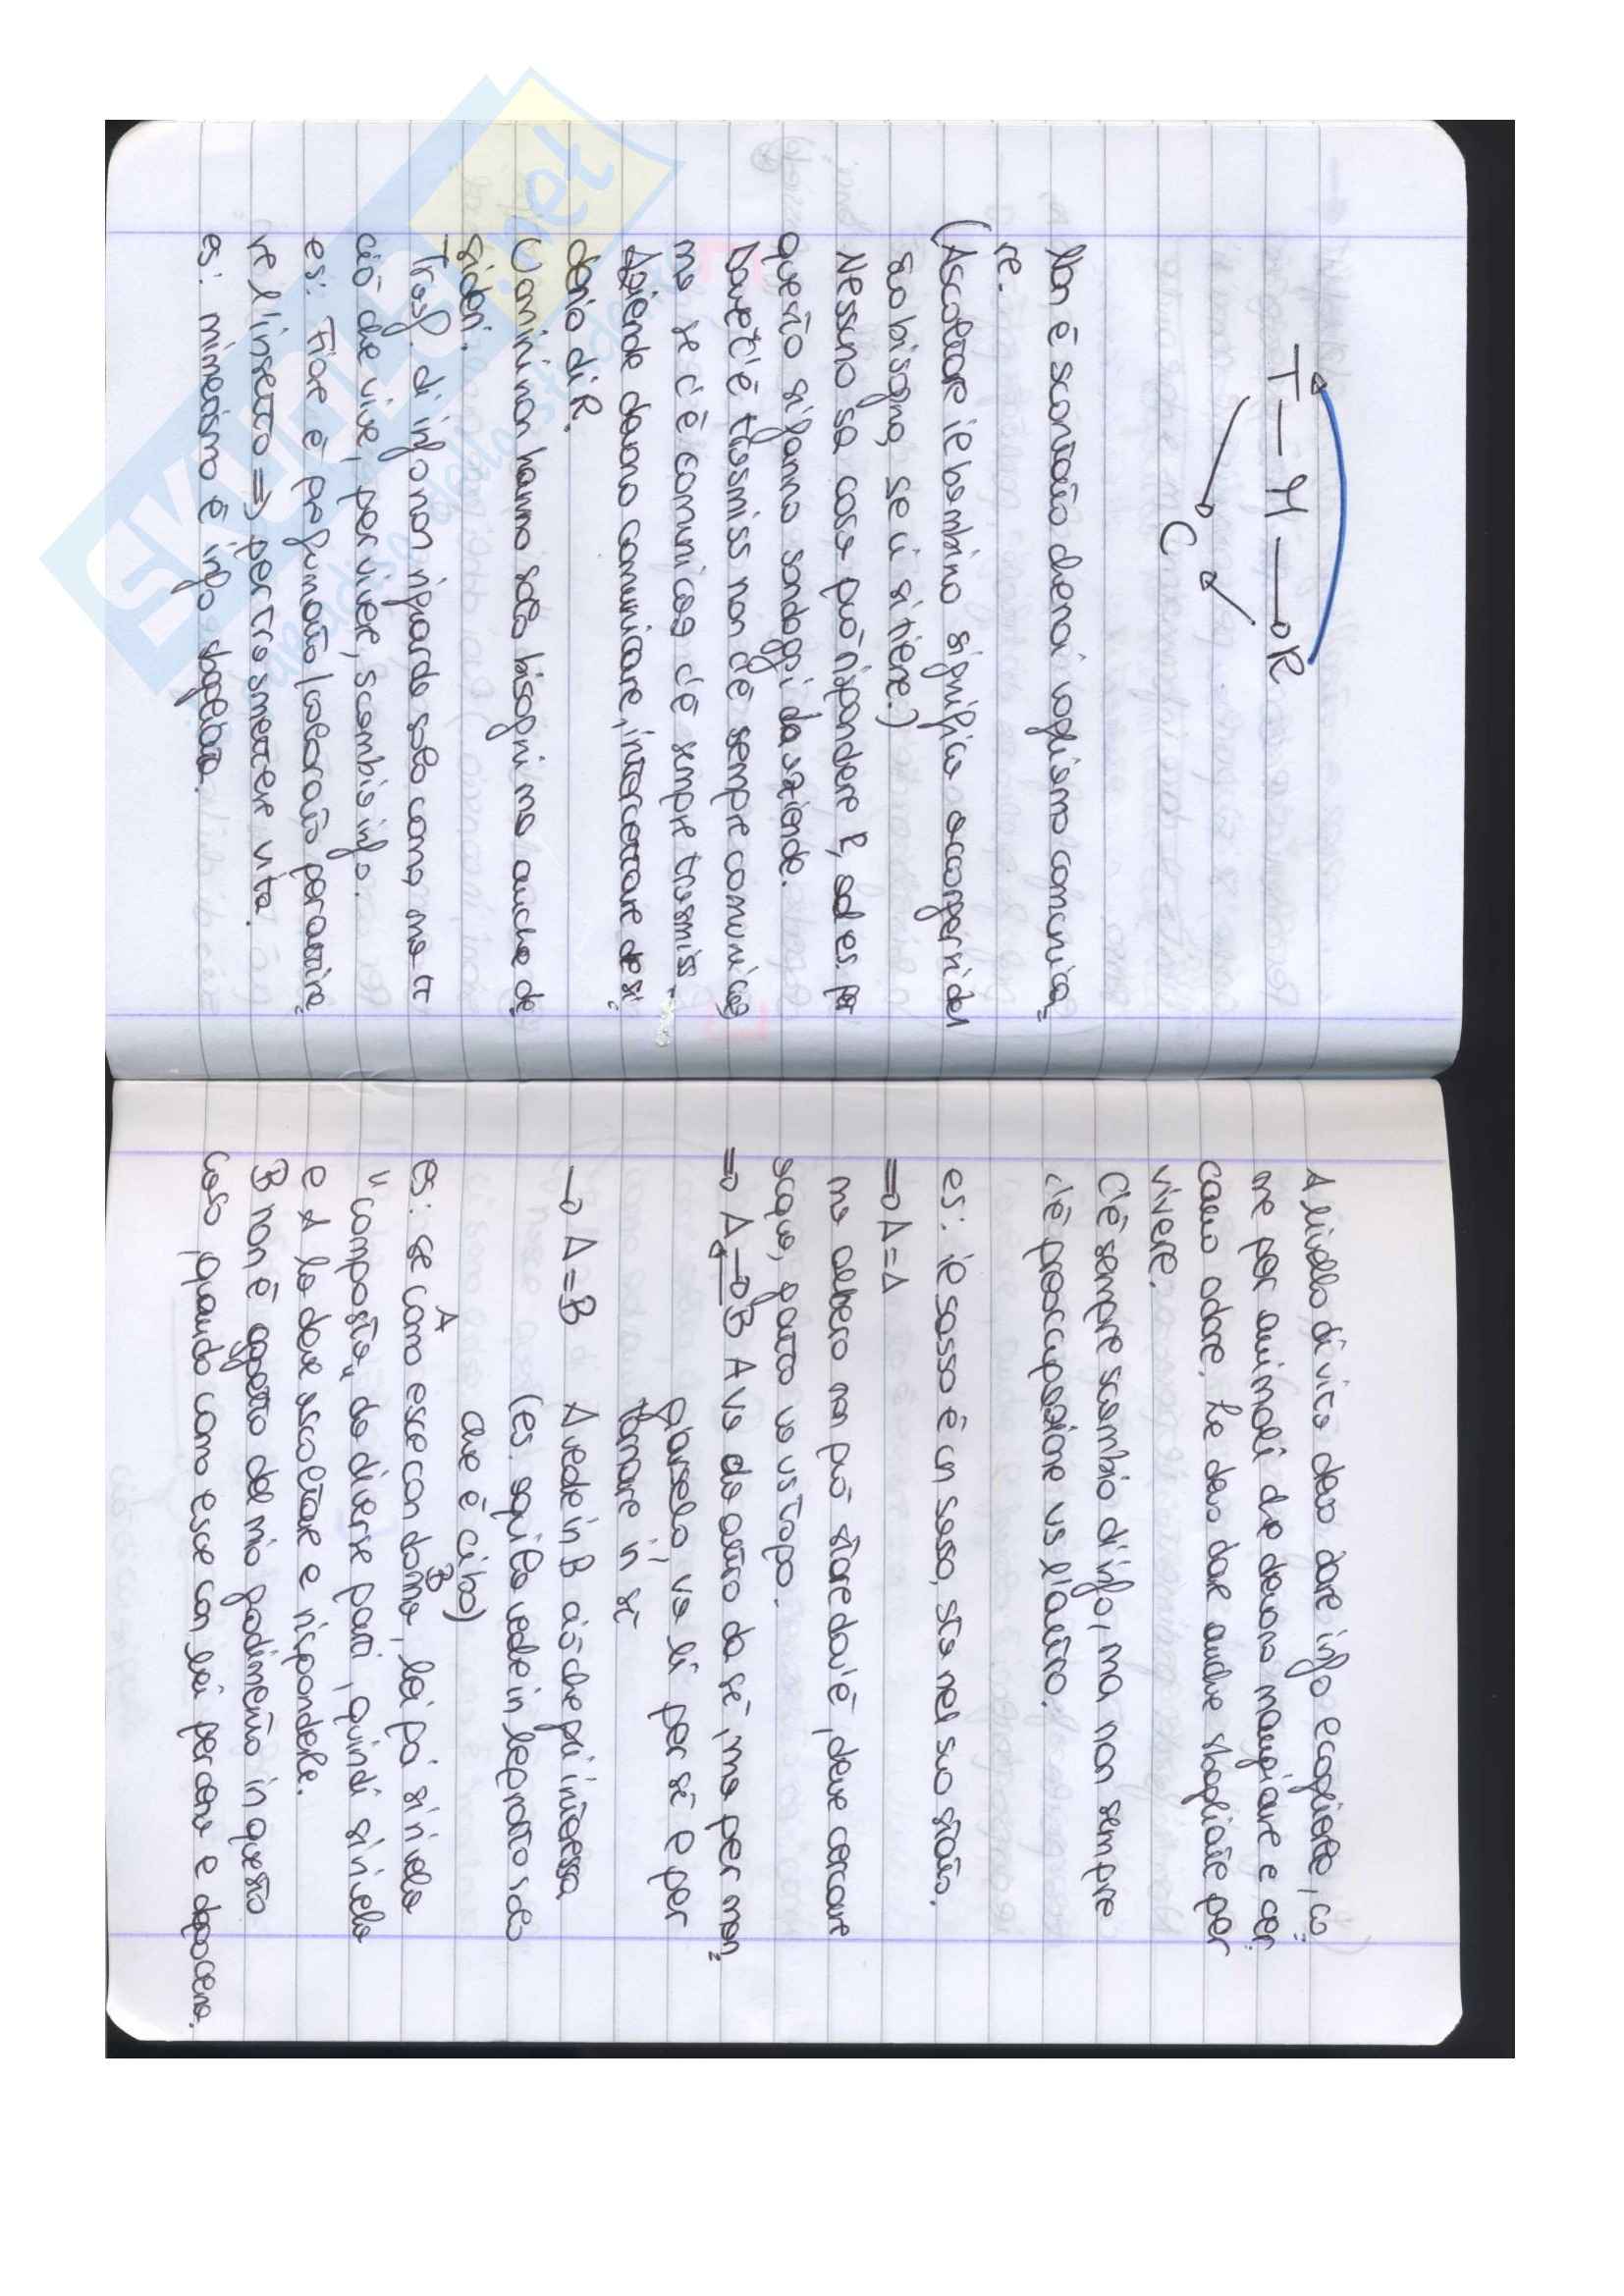 T — M —→ R
C
Non è scontato che noi vogliamo comunica=
re.
(Ascoltare il bambino significa accorgersi del
suo bisogno, se ci si tiene.)
Nessuno sa cosa può rispondere R, ad es. per
questo si fanno sondaggi da aziende.
Dove c'è trasmiss non c'è sempre comunicaz
ma se c'è comunicaz c'è sempre trasmiss.
Aziende devono comunicare, intercettare desi=
derio di R.
Uomini non hanno solo bisogni ma anche de=
sideri.
Trasf. di info non riguarda solo com, ma tt
ciò che vive, per vivere, scambia info.
es: Fiore è profumato/colorato per attira=
re l'insetto ⇒ per trasmettere vita.
es: mimetismo è info sbagliata.
A livello di vita devo dare info e coglierle, co=
me per animali che devono mangiare e cer=
cano odore. Le devo dare anche sbagliate per
vivere.
C'è sempre scambio di info, ma non sempre
c'è preoccupazione vs l'altro.
es: il sasso è un sasso, sta nel suo stato.
⇒ A = A
ma albero non può stare dov'è, deve cercare
acqua, gatto va vs topo.
⇒ A ⇄ B A va da altro da sé, ma per man=
giarselo, va lì per sé e per
tornare in sé
→ A = B A vede in B ciò che più interessa
(es. squalo vede in leprotto solo
che è cibo)
es: se uomo A esce con donna B, lei poi si rivela
"composta" da diverse parti, quindi si rivela
e A la deve ascoltare e risponderle.
B non è oggetto del mio godimento in questo
caso, quando uomo esce con lei per cena e dopocena.